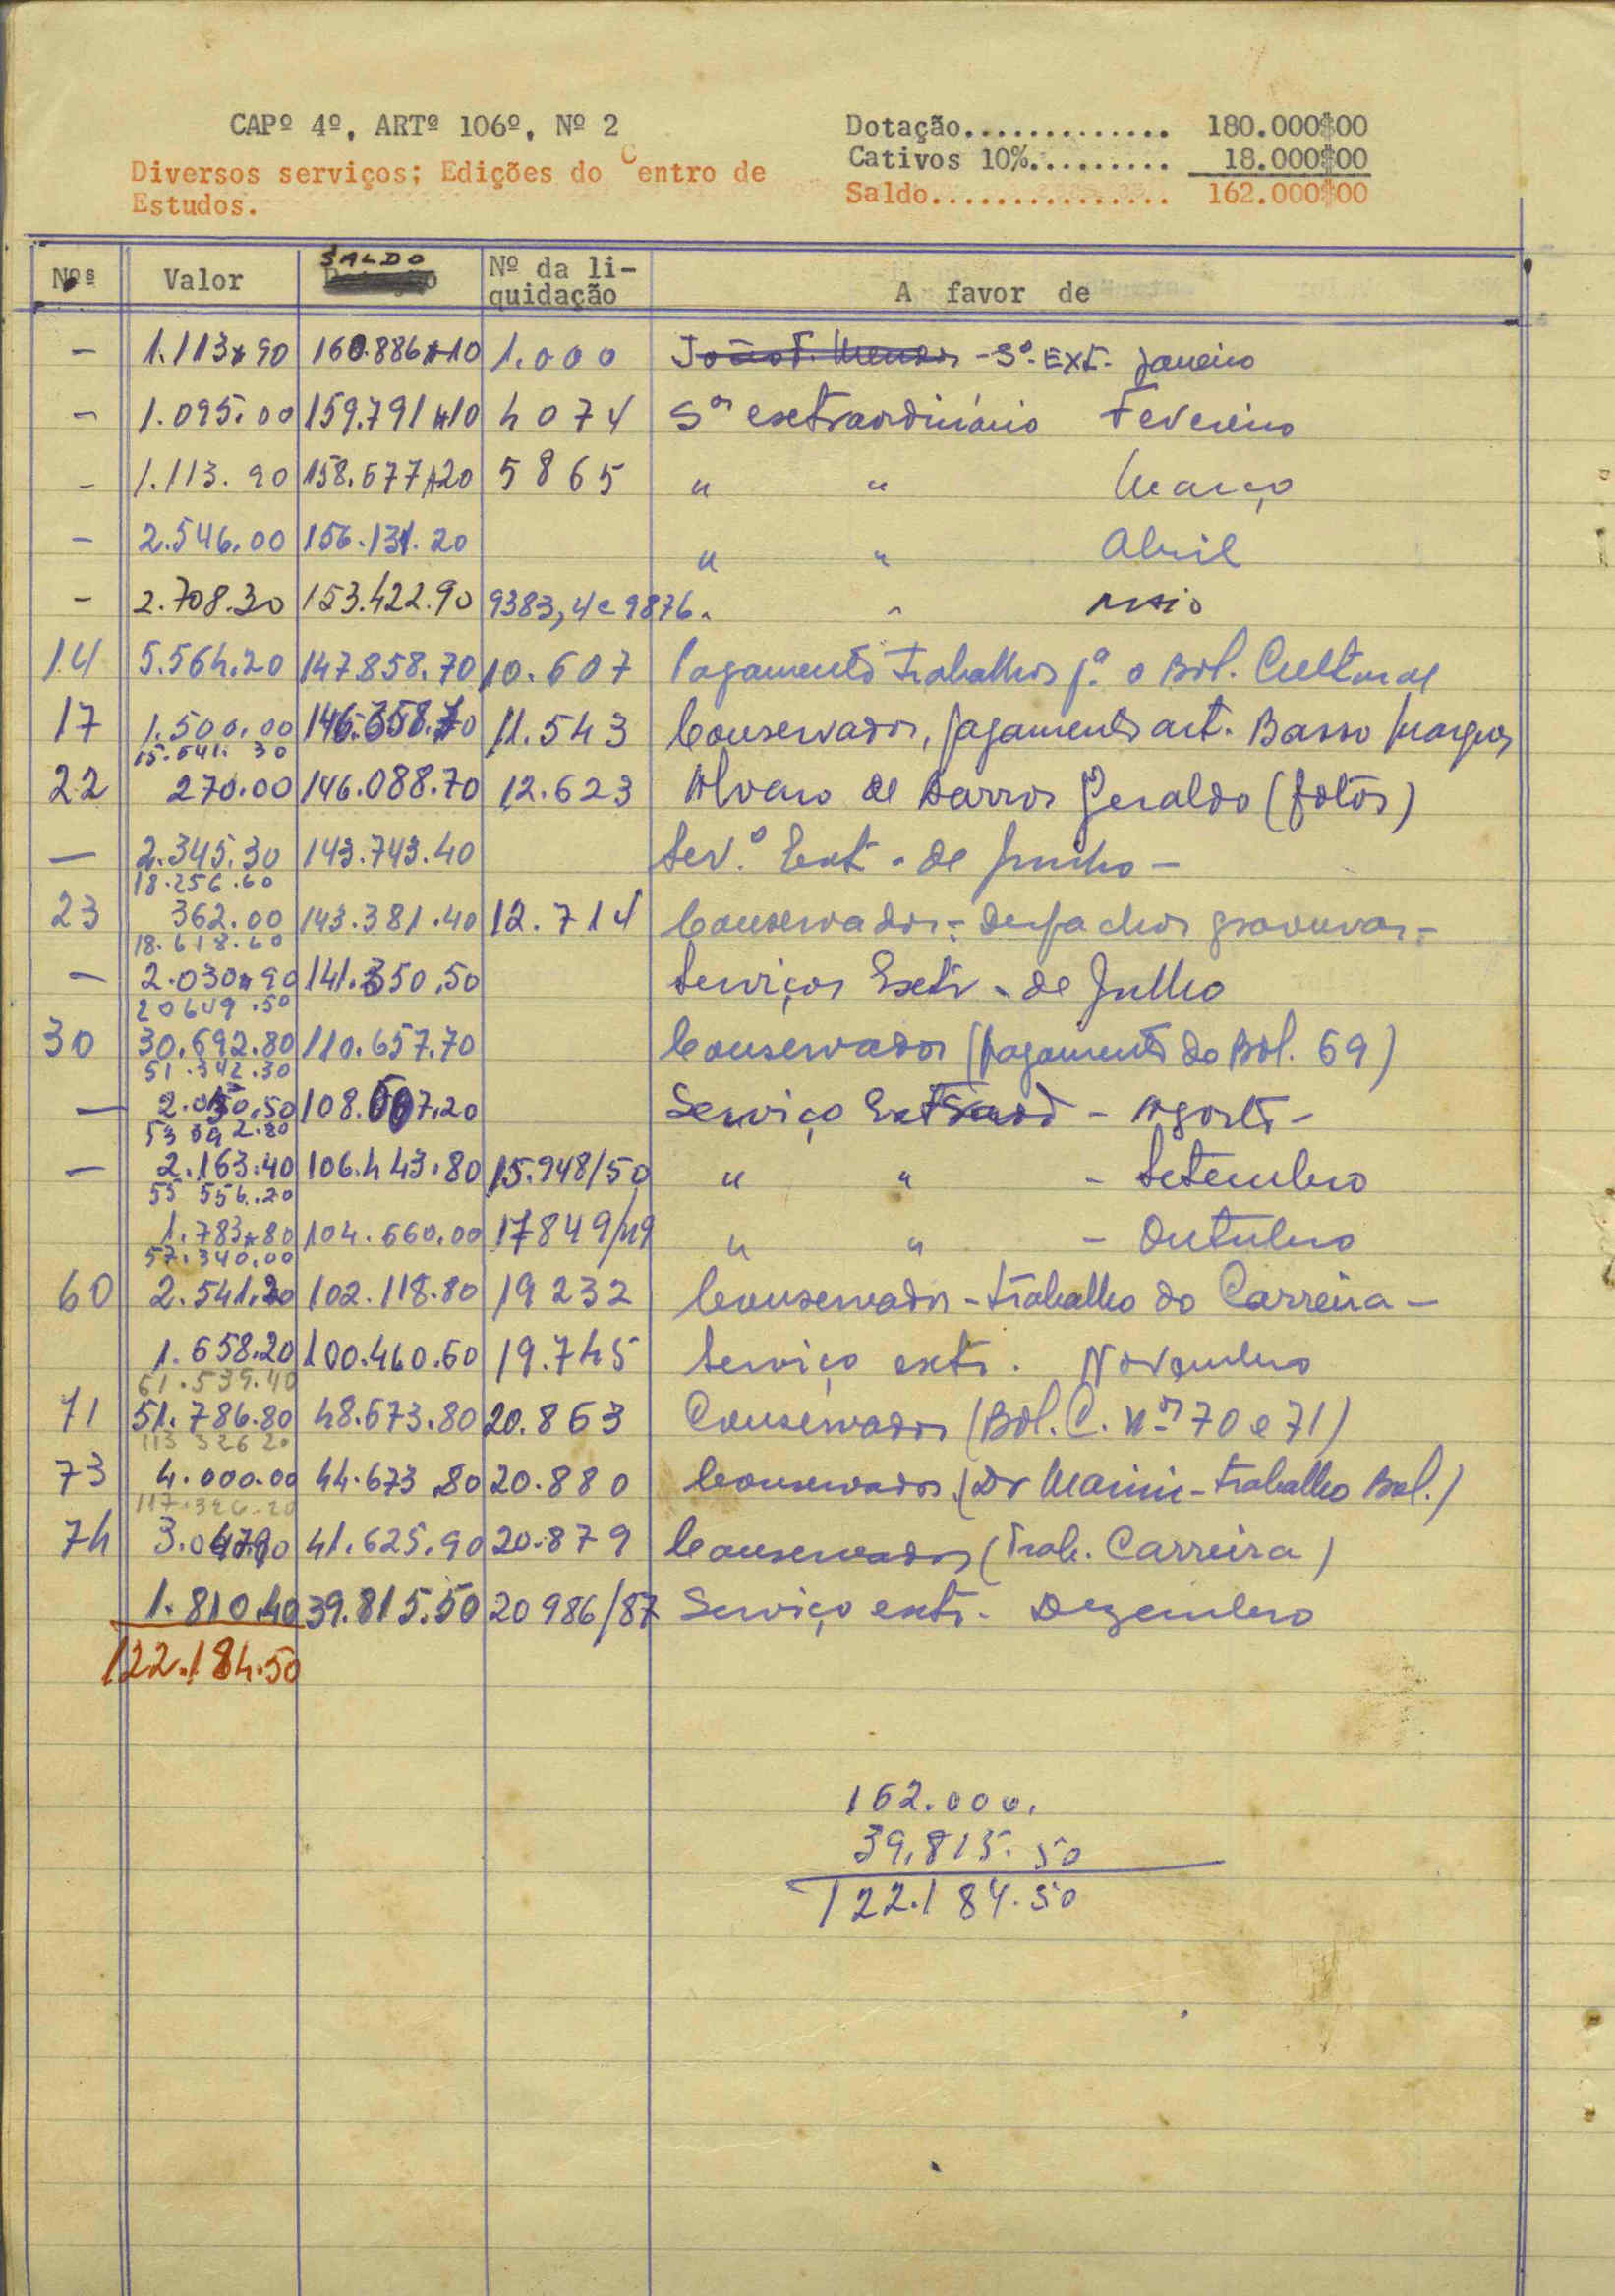 CAPº 4º, ARTº 106º, Nº 2
Diversos serviços; Edições do Centro de
Estudos.
Dotação............. 180.000$00
Cativos 10%......... 18.000$00
Saldo............... 162.000$00
Nºs Valor SALDO Nº da liquidação A favor de
- 1.113$90 160.886$10 1.000 - Sº. EXt. Janeiro
- 1.095.00 159.791$10 4074 Sº extraordinário Fevereiro
- 1.113.90 158.677$20 5865 " " Março
- 2.546.00 156.131.20 " " Abril
- 2.708.30 153.422.90 9383,4 e 9876 " " Maio
14 5.564.20 147.858.70 10.607 Pagamento trabalhos pª o Bol. Cultural
17 1.500.00 146.358.70 11.543 Conservador, pagamento art. Basso Marques
15.641.30
22 270.00 146.088.70 12.623 Alvaro de Barros Geraldo (fotos)
— 2.345.30 143.743.40 Serº. Ext. de Junho —
18.256.60
23 362.00 143.381.40 12.714 Conservador - despachos gravuras -
18.618.60
— 2.030$90 141.350.50 Serviços Extr. de Julho
20649.50
30 30.692.80 110.657.70 Conservador (pagamento do Bol. 69)
51.342.30
— 2.050.50 108.607.20 Serviço Extraord - Agosto -
53 392.80
— 2.163.40 106.443.80 15.948/50 " " - Setembro
55 556.20
1.783$80 104.660.00 17849/49 " " - Outubro
57.340.00
60 2.541.20 102.118.80 19232 Conservador - trabalho do Carreira —
1.658.20 100.460.60 19.745 Serviço extr. Novembro
61.539.40
71 51.786.80 48.673.80 20.863 Conservador (Bol. C. nºs 70 e 71)
113 326 20
73 4.000.00 44.673.80 20.880 Conservador (Dr - trabalho Bol.)
117.326.20
74 3.047.90 41.625.90 20.879 Conservador (Trab. Carreira)
1.810.40 39.815.50 20986/87 Serviço extr. Dezembro
122.184.50
162.000.
39.815.50
122.184.50